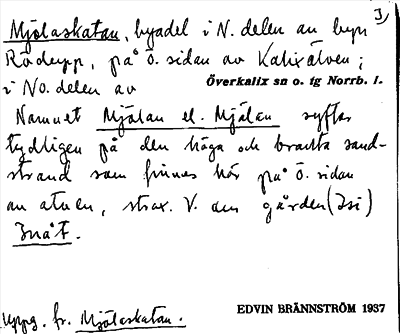 3)
Mjölaskatan, byadel i N. delen av byn
Rödupp, på ö. sidan av Kalixälven;
i No. delen av
Överkalix sn o. tg Norrb. l.
Namnet Mjölan el. Mjälan syftar
tydligen på den höga och branta sand-
strand som finnes här på Ö. sidan
av älven, strax V. om gården (Isi)
Uppg. fr. Mjölaskatan.
EDVIN BRÄNNSTRÖM 1937